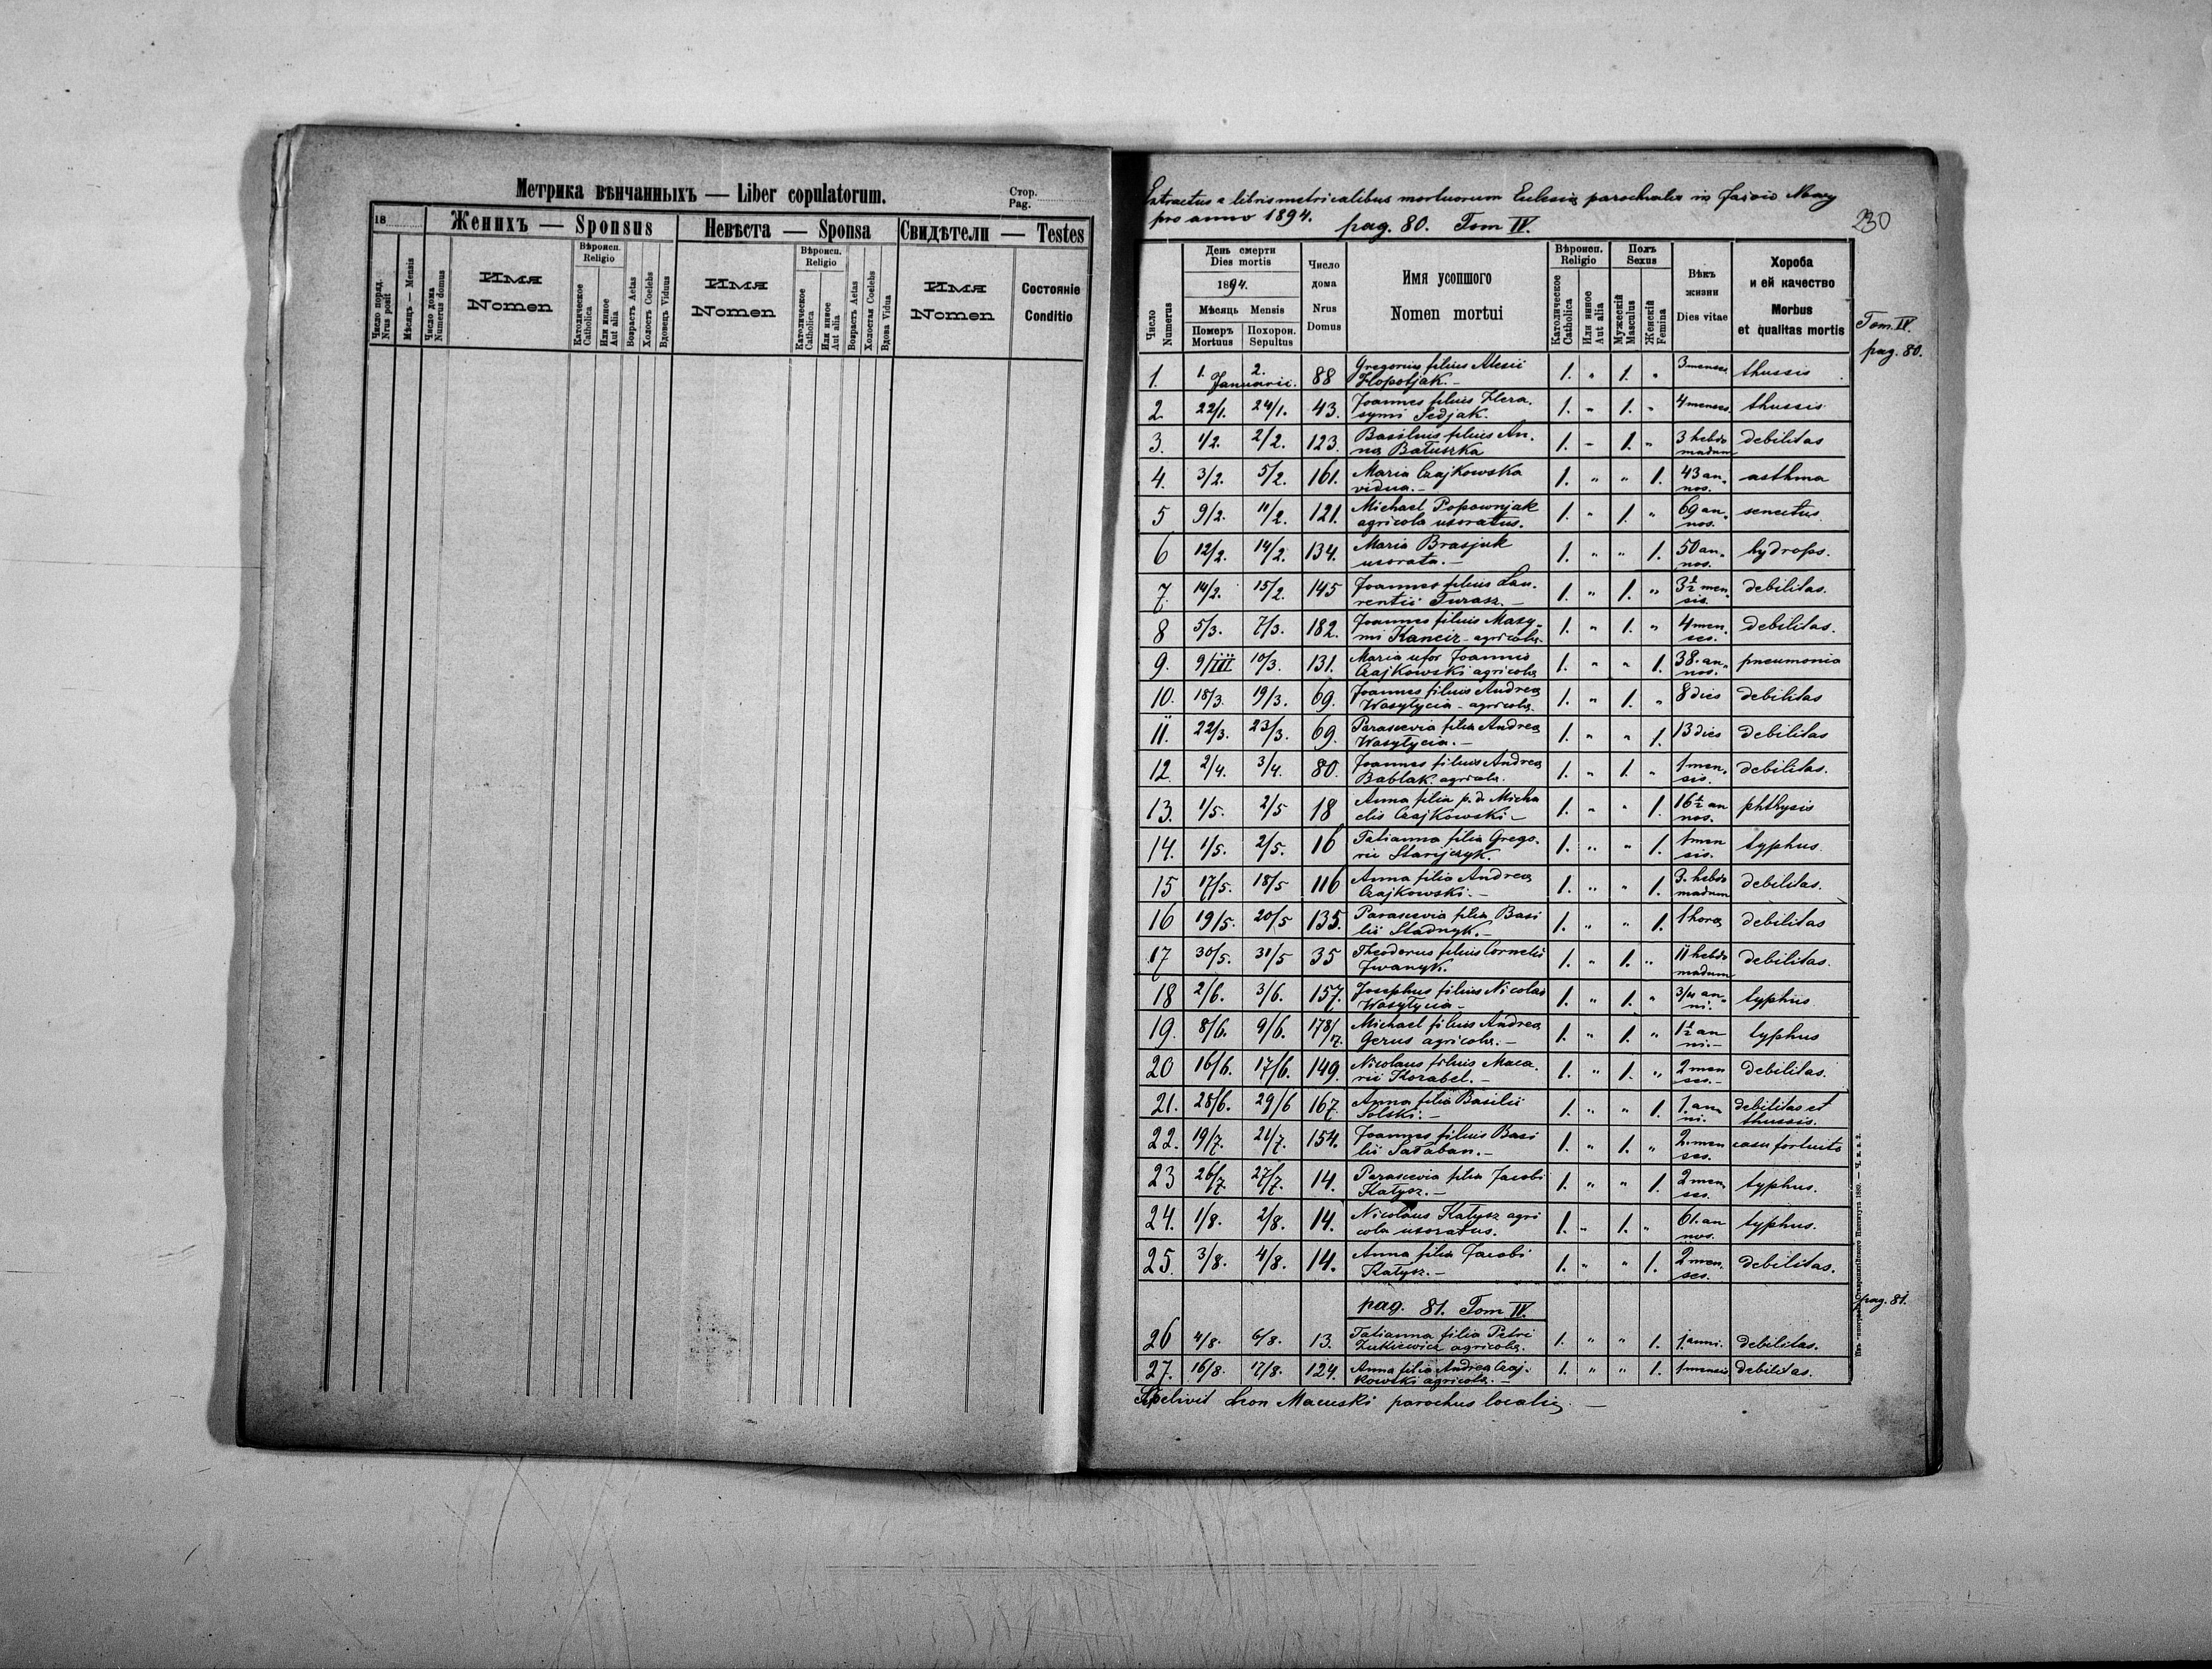 Метрика вѣнчанныхъ — Liber copulatorum.
Стор.
Pag.
18
Женихъ — Sponsus
Невѣста — Sponsa
Свидѣтели — Testes
Число поряд.
Nrus posit
Мѣсяцъ — Mensis
Число дома
Numerus domus
Имя
Nomen
Вѣроисп.
Religio
Католическое
Catholica
Или инное
Aut alia
Возрастъ Aetas
Холость Coelebs
Вдовецъ Viduus
Имя
Nomen
Вѣроисп.
Religio
Католическое
Catholica
Или инное
Aut alia
Возрастъ Aetas
Холостая Coelebs
Вдова Vidua
Имя
Nomen
Состояніе
Conditio
Extractus e libris metricalibus mortuorum Eclesiæ parochialis in
pro anno 1894. pag. 80. Tom IV.
230
Число
Numerus
День смерти
Dies mortis
1894.
Мѣсяцъ Mensis
Померъ
Mortuus
Похорон.
Sepultus
Число
дома
Nrus
Domus
Имя усопшого
Nomen mortui
Вѣроисп.
Religio
Католическое
Catholica
Или инное
Aut alia
Полъ
Sexus
Мужескій
Masculus
Женскій
Femina
Вѣкъ
жизни
Dies vitae
Хороба
и ей качество
Morbus
et qualitas mortis
Tom. IV.
pag. 80.
1. 1. 2. Januarii. 88 Gregorius filius Alexii 1. " 1. " 3 menses thussis
Hlopotjak.—
2 22/1. 24/1. 43. Joannes filius Hera- 1. " 1. " 4 menses. thussis
symi Sedjak.
3. 1/2. 2/2. 123. Basilius filius An- 1. " 1. " 3 hebdo debilitas
na Batuszka madum
4. 3/2. 5/2. 161. Maria Czajkowska 1. " " 1. 43 an- asthma
vidua.— nos.
5 9/2. 11/2. 121. Michael Popownjak 1. " 1. " 69 an- senectus
agricola uxoratus. nos.
6 12/2. 14/2. 134. Maria Brasjuk 1. " " 1. 50 an- hydrops.
uxorata.— nos.
7. 14/2. 15/2. 145 Joannes filius Lau- 1. " 1. " 3½ men- debilitas.
rentii Turasz.— sis.
8 5/3. 7/3. 182. Joannes filius Maxy- 1. " 1. " 4 men- debilitas.
mi Kancir - agricola. ses.
9. 9/III 10/3. 131. Maria uxor Joannis 1. " " 1. 38. an- pneumonia
Czajkowski agricola nos.
10. 18/3. 19/3. 69. Joannes filius Andrea 1. " 1. " 8 dies debilitas
Wasyłycia - agricola.
11. 22/3. 23/3. 69. Parascevia filia Andrea 1. " " 1. 13 dies debilitas
Wasyłycia.—
12. 2/4. 3/4. 80. Joannes filius Andrea 1. " 1. " 1 men- debilitas.
Bablak. agricola. sis.
13. 1/5. 2/5 18 Anna filia p. d. Micha 1. " " 1. 16½ an phthysis
elis Czajkowski— nos.
14. 1/5. 2/5. 16 Tatianna filia Grego- 1. " " 1. 1 men typhus.
rii Starijczyk. sis.
15 17/5. 18/5 116 Anna filia Andrea 1. " " 1. 3. hebdo debilitas.
Czajkowski.— madum
16 19/5. 20/5 135. Parascevia filia Basi 1. " " 1. 1 hora debilitas
lii Stadnyk.—
17 30/5. 31/5 35 Theodorus filius Cornelii 1. " 1. " 11 hebdo debilitas.
Iwanyk. madum
18 2/6. 3/6. 157. Josephus filius Nicolai 1. " 1. " 3/4 an- typhus
Wasyłycia— ni.
19. 8/6. 9/6. 178/ Michael filius Andrea 1. " 1. " 1½ an typhus
Gerus agricola.— ni.—
20 16/6. 17/6. 149. Nicolaus filius Maca- 1. " 1. " 2 men debilitas.
rii Korabel.— ses.—
21. 28/6. 29/6 167. Anna filia Basilii 1. " " 1. 1. an debilitas et
Solski.— ni. thussis.
22. 19/7. 21/7. 154. Joannes filius Basi 1. " 1. " 2. men casu fortuito
lii Sałaban.— ses.
23 26/7 27/7. 14. Parascevia filia Jacobi 1. " " 1. 2 men typhus.
Kałysz.— ses.
24. 1/8. 2/8. 14. Nicolaus Kałysz agri 1. " 1. " 61. an typhus.
cola uxoratus. nos.
25. 3/8. 4/8. 14. Anna filia Jacobi 1. " " 1. 2 men. debilitas.
Kałysz.— ses.
pag. 81. Tom IV.
pag. 81.
26 4/8. 6/8. 13. Tatianna filia Petri 1. " " 1. 1. anni. debilitas.
Zukiewicz agricola.
27. 16/8. 17/8. 124. Anna filia Andrea Czaj- 1. " " 1. 1 mensis debilitas.
kowski agricola.—
Sepelivit Leon Macuski parochus localis.—